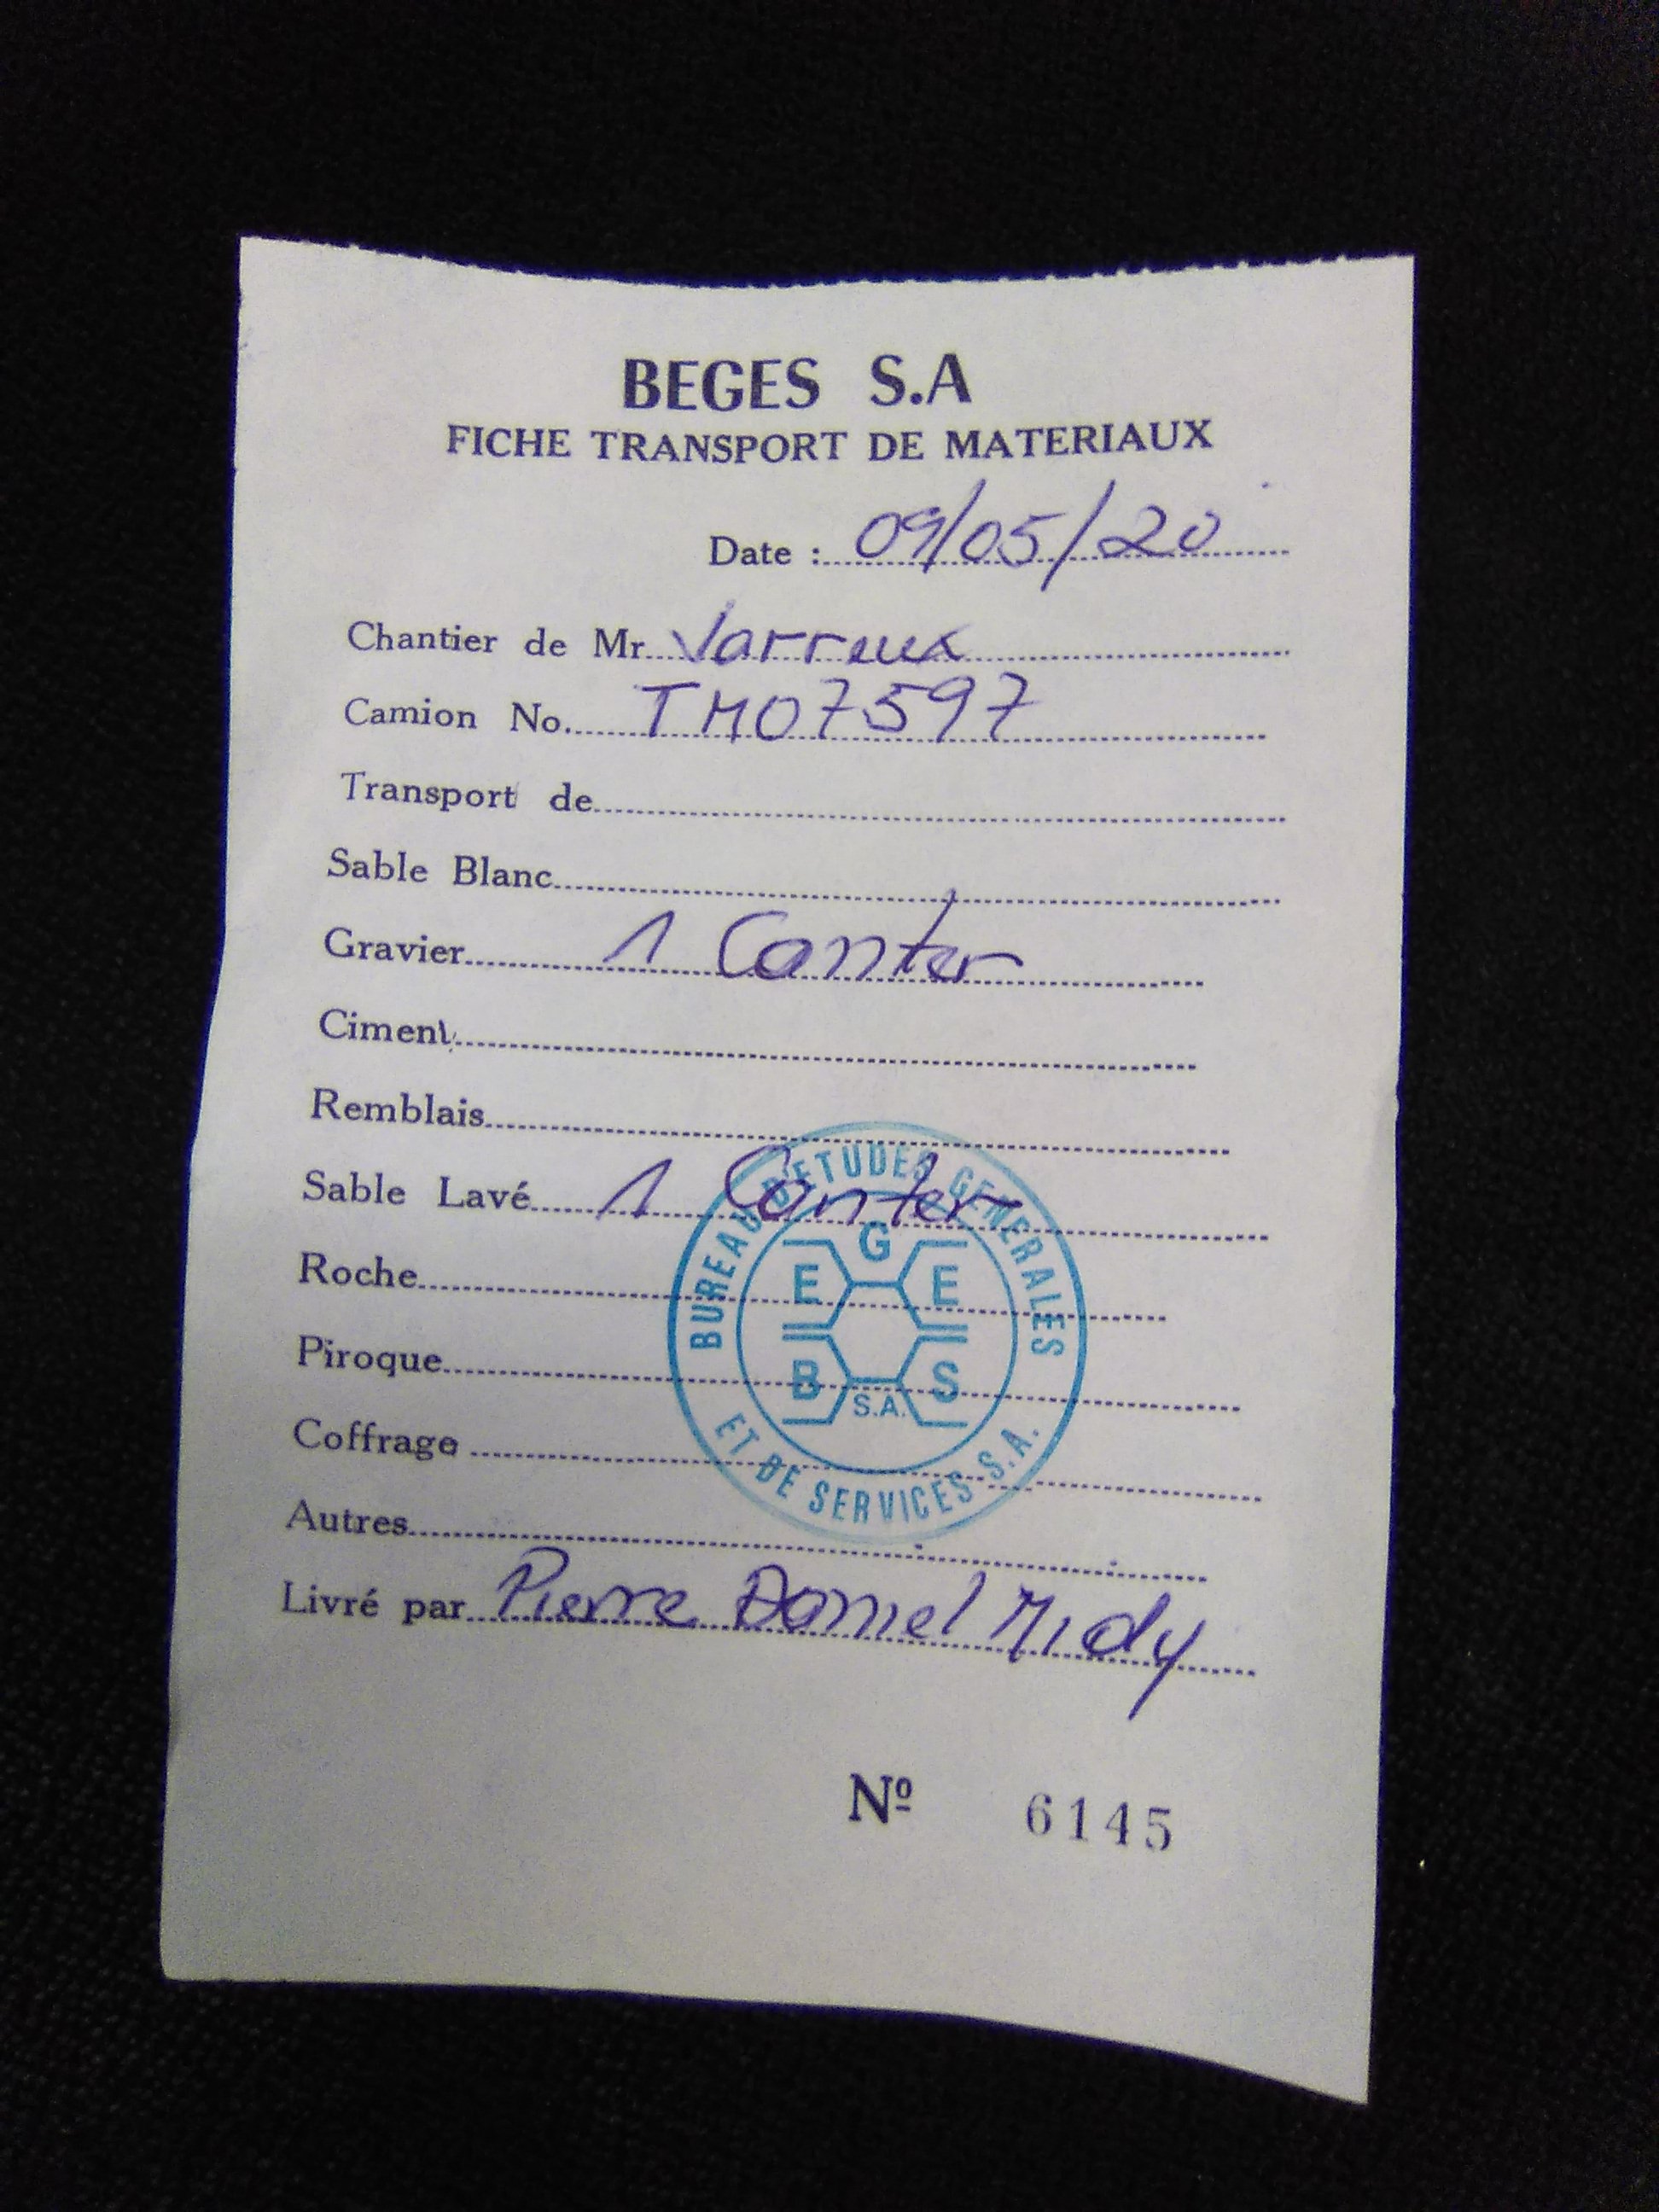 BEGES S.A
FICHE TRANSPORT DE MATERIAUX
Date : 09/05/20
Chantier de Mr Varreux
Camion No. TM07597
Transport de
Sable Blanc
Gravier 1 Canter
Ciment
Remblais
Sable Lavé 1 Canter
Roche
Piroque
Coffrage
Autres
Livré par Pierre Daniel Midy
BUREAU D'ETUDES GENERALES
ET DE SERVICES S.A.
B E G E S
S.A.
Nº 6145